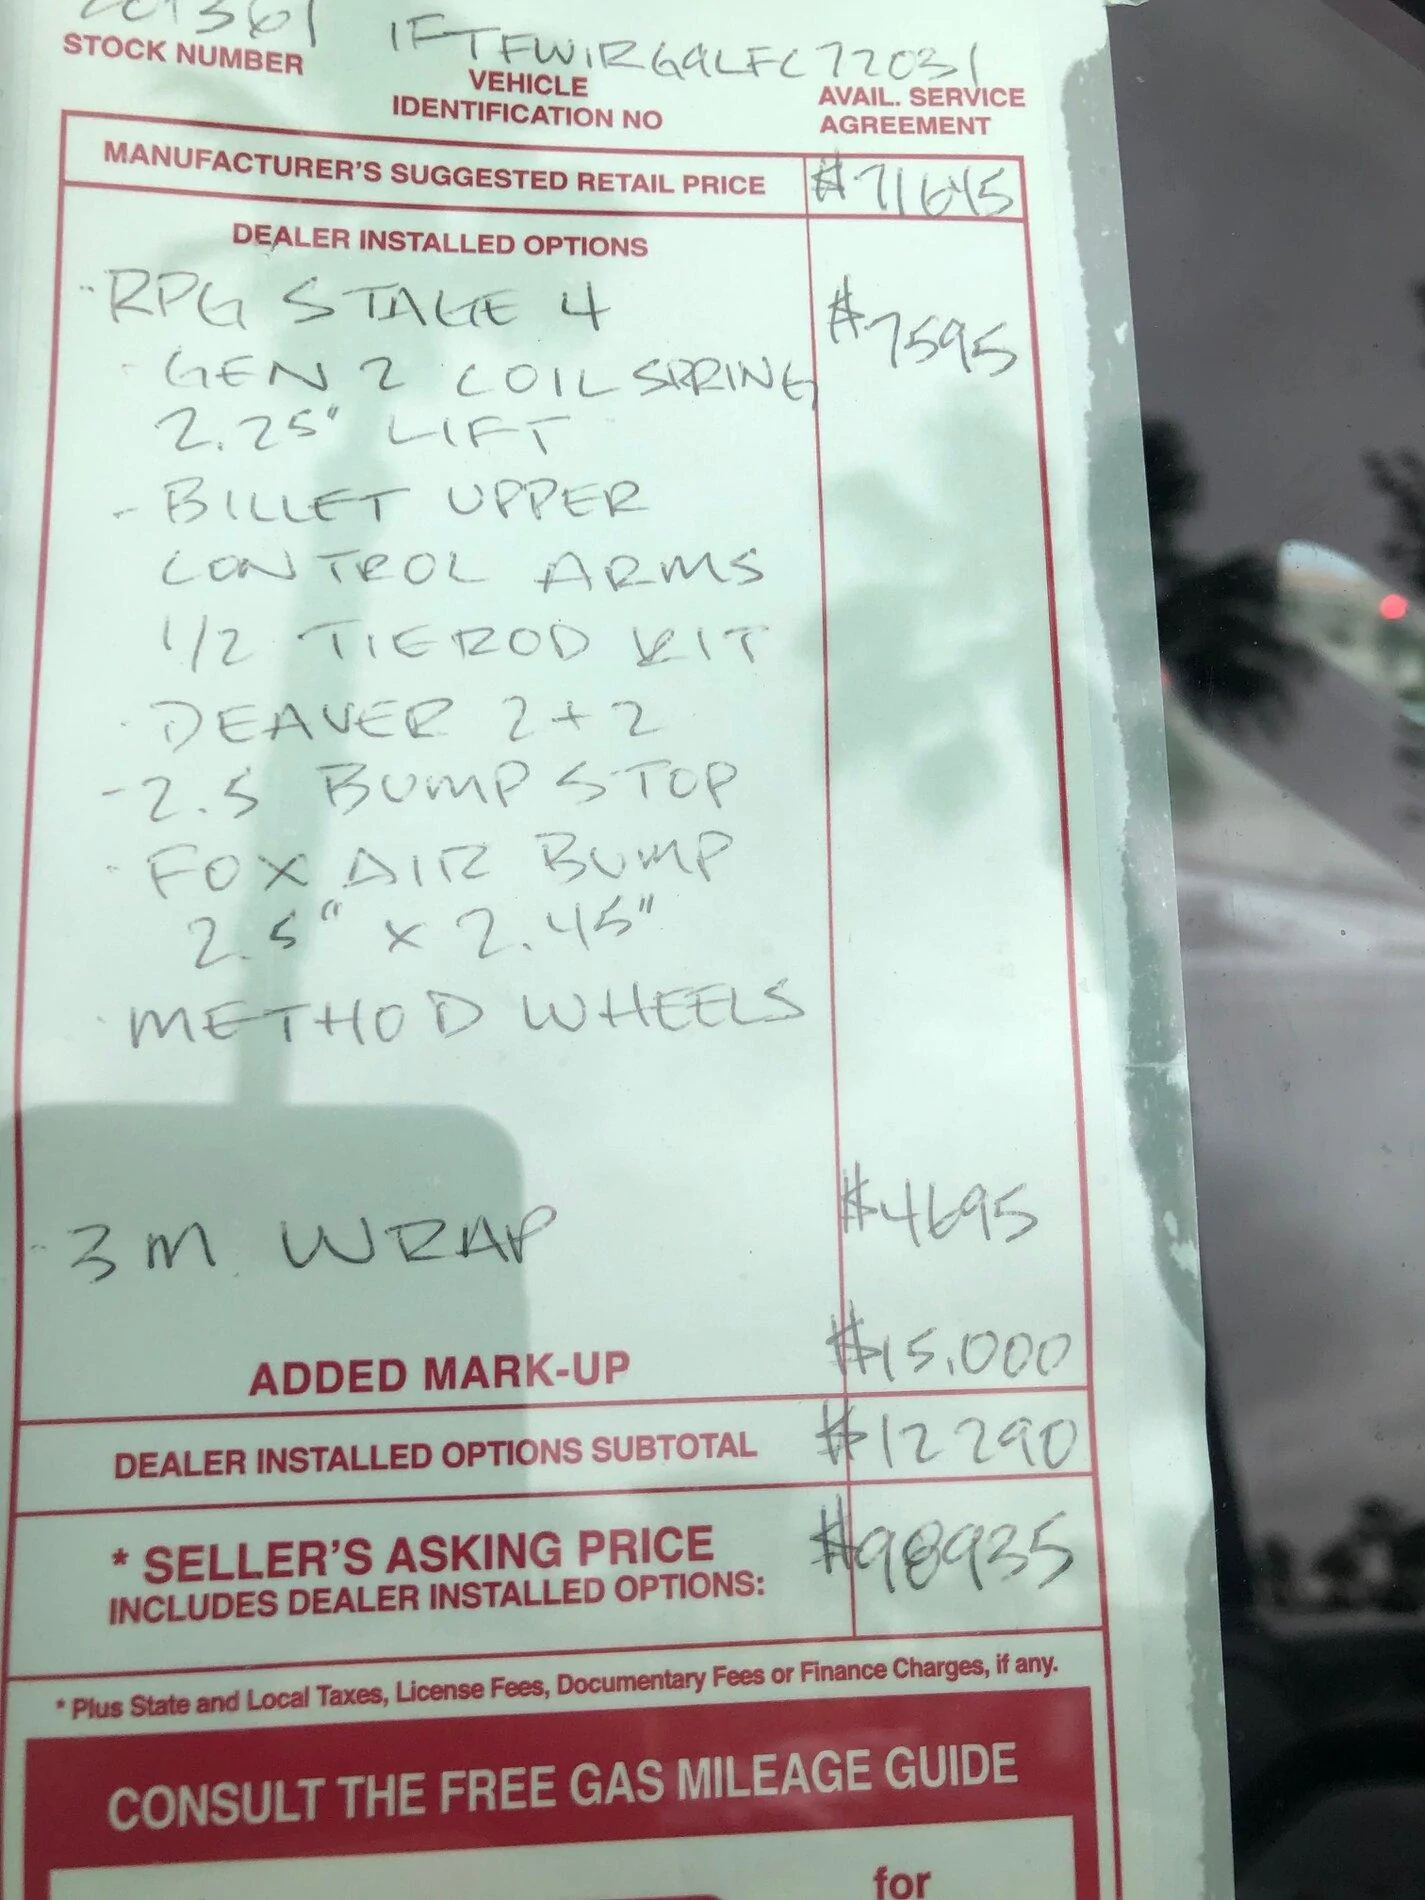 STOCK NUMBER
1FTFW1RG9LFC72031
VEHICLE
IDENTIFICATION NO
AVAIL. SERVICE
AGREEMENT
MANUFACTURER'S SUGGESTED RETAIL PRICE $71645
DEALER INSTALLED OPTIONS
-RPG STAGE 4 $7595
- GEN 2 COIL SPRING
2.25" LIFT
- BILLET UPPER
CONTROL ARMS
1/2 TIEROD KIT
- DEAVER 2+2
-2.5 BUMP STOP
- FOX AIR BUMP
2.5" x 2.45"
- METHOD WHEELS
- 3M WRAP $4695
ADDED MARK-UP $15,000
DEALER INSTALLED OPTIONS SUBTOTAL $12290
* SELLER'S ASKING PRICE $98935
INCLUDES DEALER INSTALLED OPTIONS:
* Plus State and Local Taxes, License Fees, Documentary Fees or Finance Charges, if any.
CONSULT THE FREE GAS MILEAGE GUIDE
for